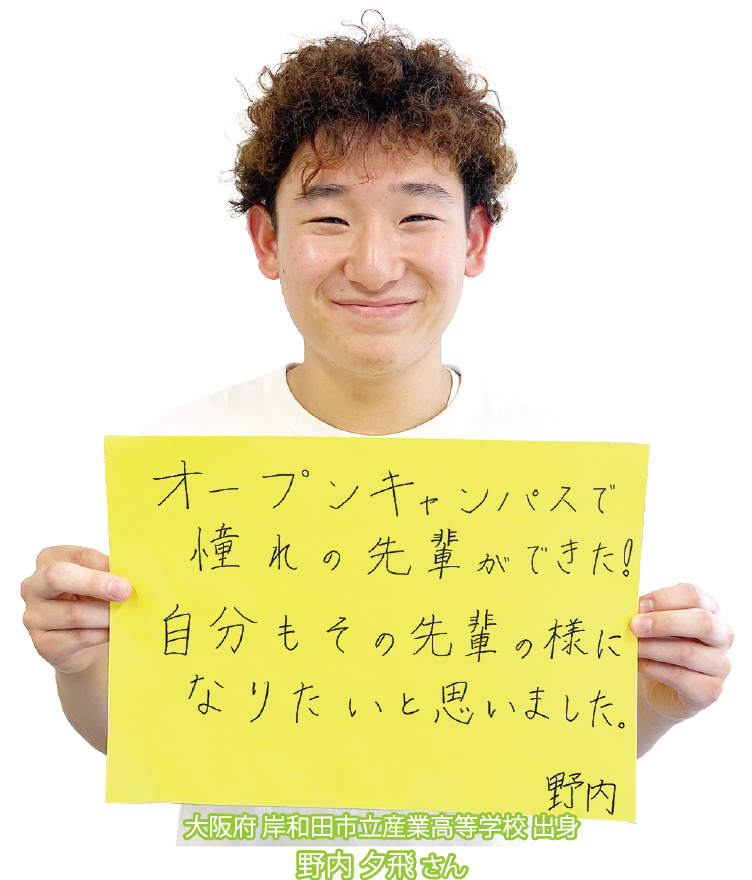 オープンキャンパスで
憧れの先輩ができた!
自分もその先輩の様に
なりたいと思いました。
野内
大阪府 岸和田市立産業高等学校 出身
野内 夕飛 さん